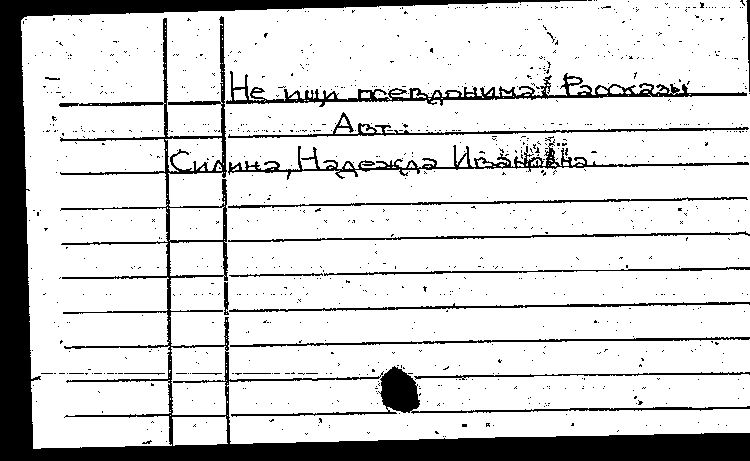 Не ищи псевдонима. Рассказы
Авт.:
Силина, Надежда Ивановна.